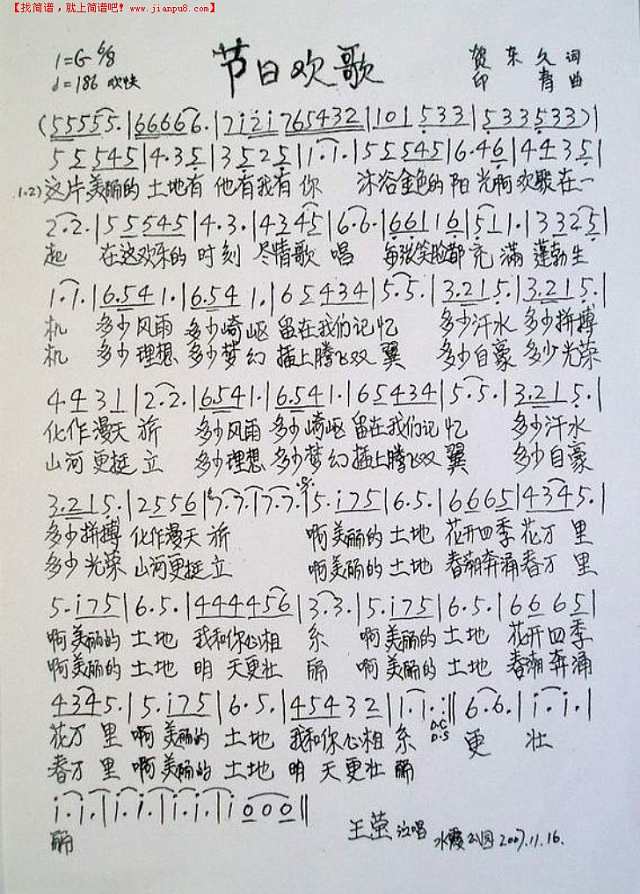 【找简谱，就上简谱吧！www.jianpu8.com】
1=G 6/8 节日欢歌 贺东久 词
♩=186 欢快 印青 曲
(55555.|66666.|7i2i765432|101533|533533)|
55545|4.35|3525|1.1.|55545|6.46|4435|
1.2)这片美丽的土地有他有我有你 沐浴金色的阳光啊欢聚在一
2.2.|55545|4.3.|4345|6.6.|66116|511.|3325|
起 在这欢乐的时刻 尽情歌唱 每张笑脸都充满蓬勃生
1.1.|6.541.|6.541.|65434|5.5.|3.215.|3.215.|
机 多少风雨多少崎岖留在我们记忆 多少汗水多少拼搏
机 多少理想多少梦幻插上腾飞双翼 多少自豪多少光荣
4.431|2.2.|6.541.|6.541.|65434|5.5.|3.215.|
化作漫天旂 多少风雨多少崎岖留在我们记忆 多少汗水
山河更挺立 多少理想多少梦幻插上腾飞双翼 多少自豪
3.215.|2556|7.7.|7.7.|5.i75|6.5.|6665|4345.|
多少拼搏化作漫天旂 啊美丽的土地花开四季花万里
多少光荣山河更挺立 啊美丽的土地春潮奔涌春万里
5.i75|6.5.|444456|3.3.|5.i75|6.5.|6665|
啊美丽的土地我和你心相系 啊美丽的土地花开四季
啊美丽的土地明天更壮丽 啊美丽的土地春潮奔涌
4345.|5.i75|6.5.|45432|1.1.:‖6.6.|i.i.|
花万里啊美丽的土地我和你心相系 D.C D.S 更壮
春万里啊美丽的土地明天更壮丽
i.i.|i.i.|i.i.|i000‖
丽 王莹 泣唱 水霞公园2007.11.16.